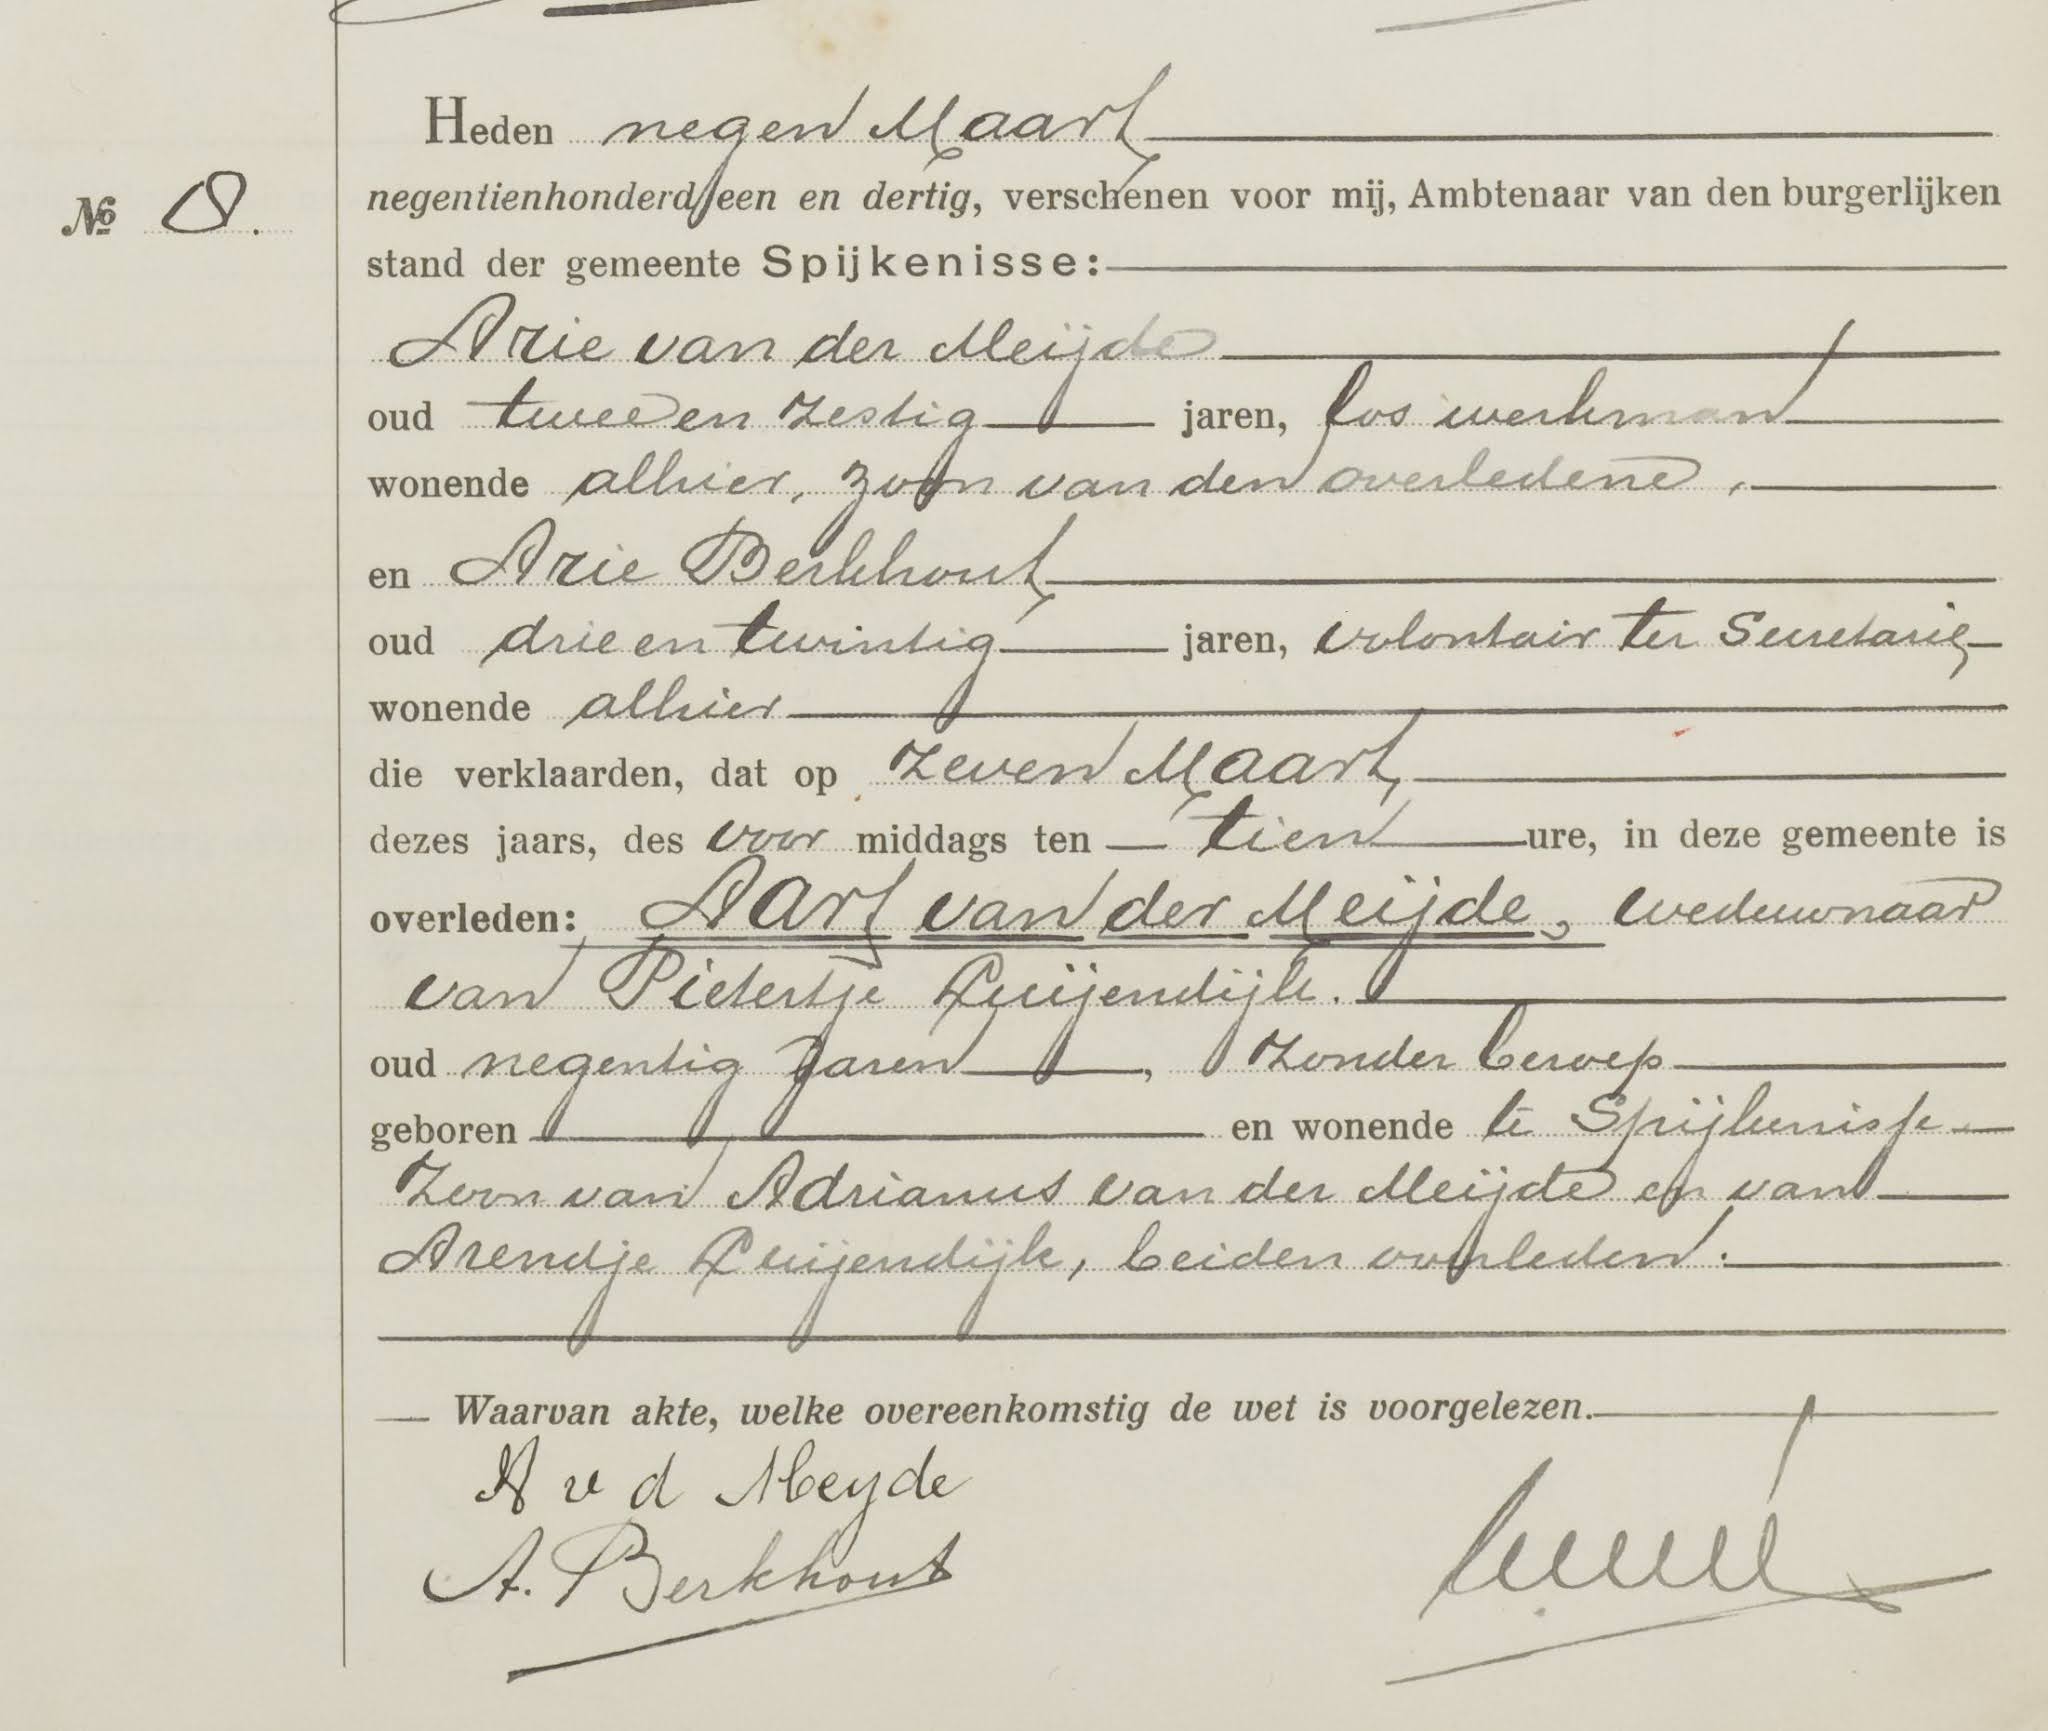 Heden negen Maart
No 8.
negentienhonderd een en dertig, verschenen voor mij, Ambtenaar van den burgerlijken
stand der gemeente Spijkenisse:
Arie van der Meijde
oud twee en zestig jaren, los werkman
wonende alhier, zoon van den overledene,
en Arie Berkhout
oud drie en twintig jaren, volontair ter Secretarie
wonende alhier
die verklaarden, dat op zeven Maart,
dezes jaars, des voor middags ten tien ure, in deze gemeente is
overleden: Aart van der Meijde, weduwnaar
van Pietertje Luijendijk.
oud negentig jaren, zonder beroep
geboren en wonende te Spijkenisse
zoon van Adrianus van der Meijde en van
Arendje Luijendijk, beiden overleden.
Waarvan akte, welke overeenkomstig de wet is voorgelezen.
A v d Meyde
A. Berkhout